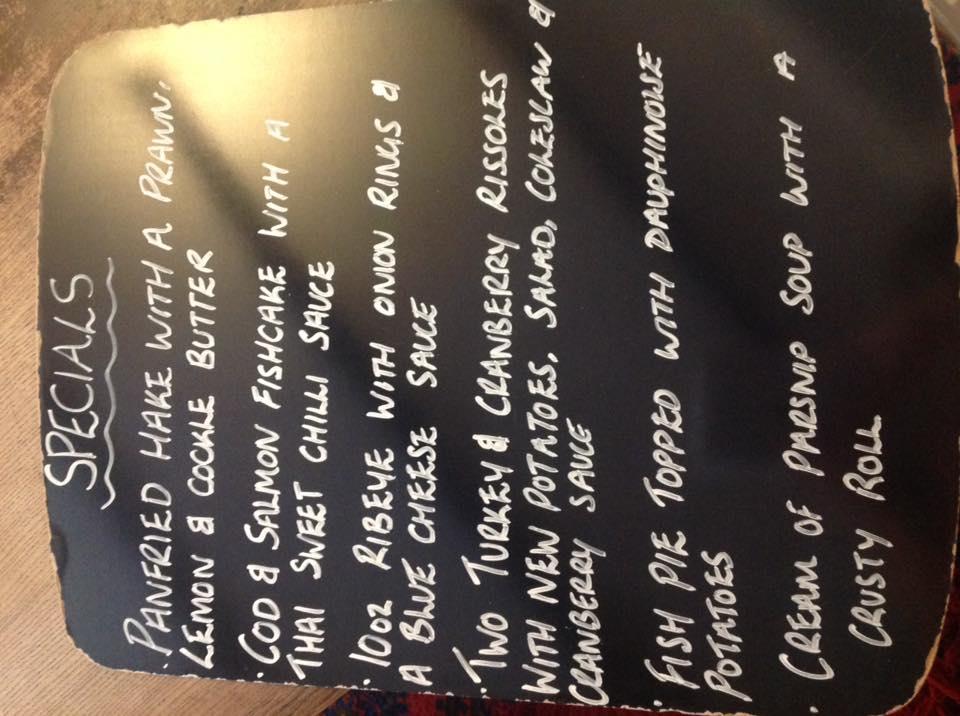 SPECIALS
· PANFRIED HAKE WITH A PRAWN,
LEMON & COCKLE BUTTER
· COD & SALMON FISHCAKE WITH A
THAI SWEET CHILLI SAUCE
· 10OZ RIBEYE WITH ONION RINGS &
A BLUE CHEESE SAUCE
· TWO TURKEY & CRANBERRY RISSOLES
WITH NEW POTATOES, SALAD, COLESLAW &
CRANBERRY SAUCE
· FISH PIE TOPPED WITH DAUPHINOISE
POTATOES
· CREAM OF PARSNIP SOUP WITH A
CRUSTY ROLL